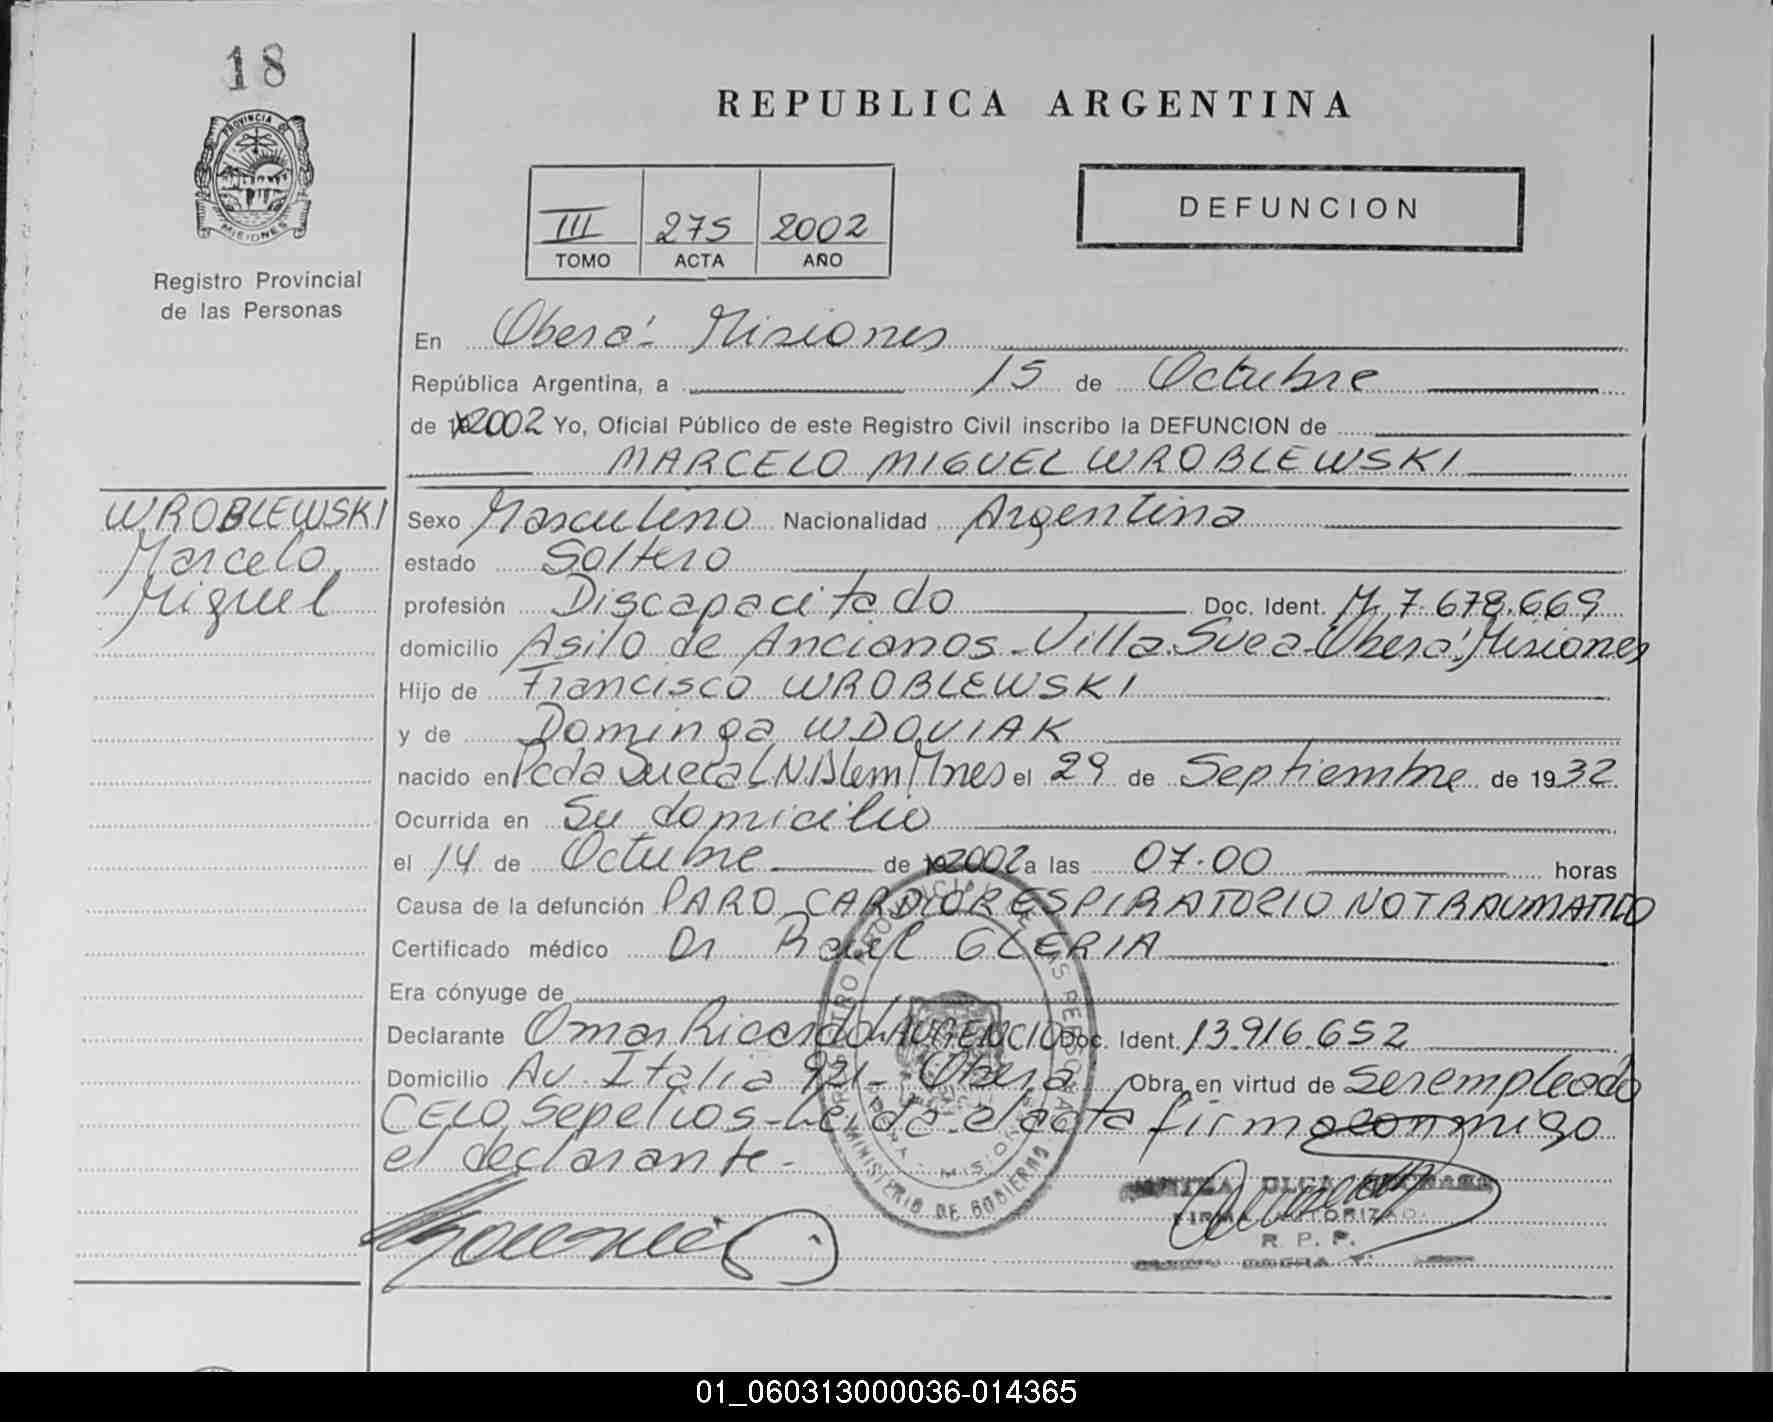 18
PROVINCIA DE
MISIONES
Registro Provincial
de las Personas
REPUBLICA ARGENTINA
III 275 2002
TOMO ACTA AÑO
DEFUNCION
En Oberá - Misiones
República Argentina, a 15 de Octubre
de 2002 Yo, Oficial Público de este Registro Civil inscribo la DEFUNCION de
MARCELO MIGUEL WROBLEWSKI
WROBLEWSKI
Marcelo
Miguel
Sexo Masculino Nacionalidad Argentina
estado Soltero
profesión Discapacitado Doc. Ident. M. 7.678.669
domicilio Asilo de Ancianos - Villa Svea - Oberá Misiones
Hijo de Francisco WROBLEWSKI
y de Dominga WDOVIAK
nacido en Pcda Sueca L.N.Alem Mnes el 29 de Septiembre de 1932
Ocurrida en Su domicilio
el 14 de Octubre de 2002 a las 07.00 horas
Causa de la defunción PARO CARDIORESPIRATORIO NO TRAUMATICO
Certificado médico Dr Raul GLERIA
Era cónyuge de
Declarante Omar Ricardo Doc. Ident. 13.916.652
Domicilio Av. Italia 921 - Oberá Obra en virtud de ser empleado
CELO Sepelios - Leida el acta firma conmigo
el declarante -
MINISTERIO DE GOBIERNO
OLGA
FIRMA AUTORIZADA
R. P. P.
01_060313000036-014365